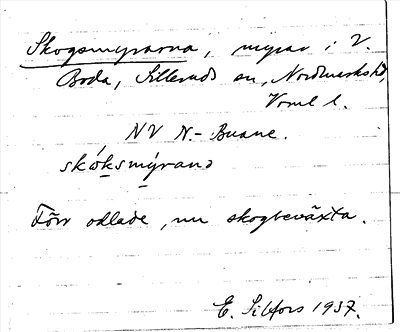 Skogsmyrarna, myrar i V.
Boda, Silleruds sn, Nordmarks hd,
Vrml l.
NV N.- Buane.
skóksmýrana
Förr odlade, nu skogbeväxta.
E. Silfors 1937.